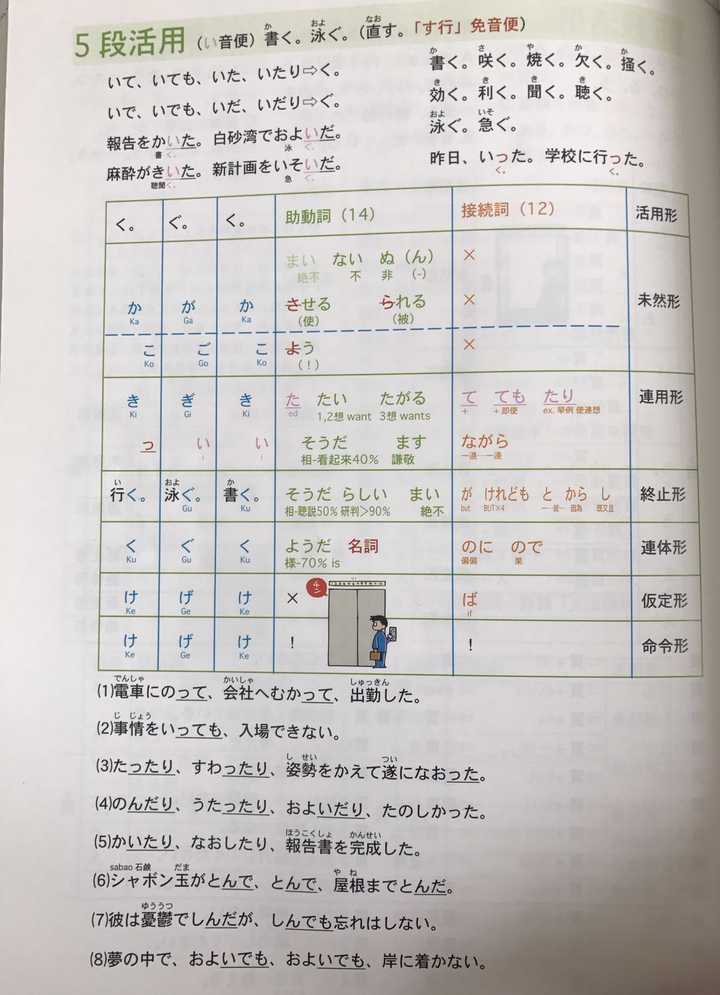 5段活用（い音便）書く。泳ぐ。（直す。「す行」免音便）
いて、いても、いた、いたり⇨く。
いで、いでも、いだ、いだり⇨ぐ。
報告をかいた。白砂湾でおよいだ。
書く。泳ぐ。
麻酔がきいた。新計画をいそいだ。
聴聞く。急ぐ。
書く。咲く。焼く。欠く。掻く。
効く。利く。聞く。聴く。
泳ぐ。急ぐ。
昨日、いった。学校に行った。
く。 く。
く。 ぐ。 く。 助動詞（14） 接続詞（12） 活用形
まい ない ぬ（ん） ×
絶不 不 非 (-)
か が か させる られる × 未然形
Ka Ga Ka （使） （被）
こ ご こ よう ×
Ko Go Ko （！）
き ぎ き た たい たがる て ても たり 連用形
Ki Gi Ki ed 1,2想 want 3想 wants + +即使 ex. 舉例 使連想
っ い い そうだ ます ながら
相-看起來40% 謙敬 一邊…一邊
行く。 泳ぐ。 書く。 そうだ らしい まい が けれども と から し 終止形
Gu Ku 相-聽説50% 研判>90% 絶不 but BUT×4 一…就… 因為 既又且
く ぐ く ようだ 名詞 のに ので 連体形
Ku Gu Ku 様-70% is 偏偏 果
け げ け × ば 仮定形
Ke Ge Ke if
け げ け ! ! 命令形
Ke Ge Ke
(1)電車にのって、会社へむかって、出勤した。
(2)事情をいっても、入場できない。
(3)たったり、すわったり、姿勢をかえて遂になおった。
(4)のんだり、うたったり、およいだり、たのしかった。
(5)かいたり、なおしたり、報告書を完成した。
sabao 石鹸
(6)シャボン玉がとんで、とんで、屋根までとんだ。
(7)彼は憂鬱でしんだが、しんでも忘れはしない。
(8)夢の中で、およいでも、およいでも、岸に着かない。